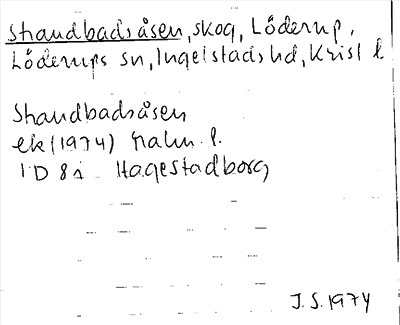 Strandbadsåsen, skog, Löderup,
Löderups sn, Ingelstads hd, Krist l.
Strandbadsåsen
ek (1974) Malm. l.
1D 8i Hagestadborg
J.S. 1974